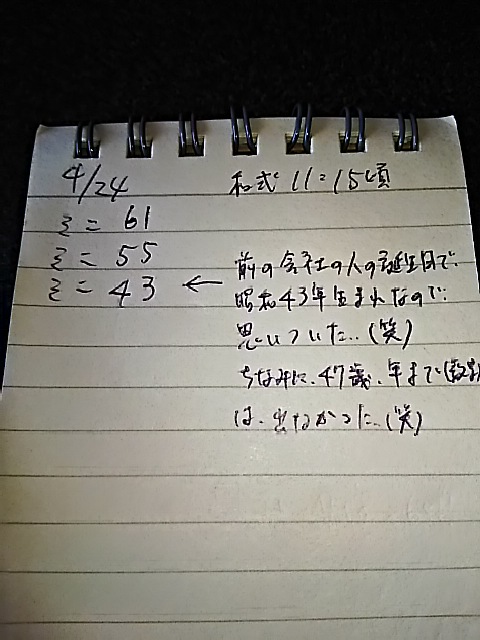 4/24 和式 11:15頃
ミニ 61
ミニ 55
ミニ 43 ←
前の会社の人の誕生日で.
昭和43年生まれなので.
思いついた..(笑)
ちなみに、47歳.年まで(数字
は、出なかった..(笑)